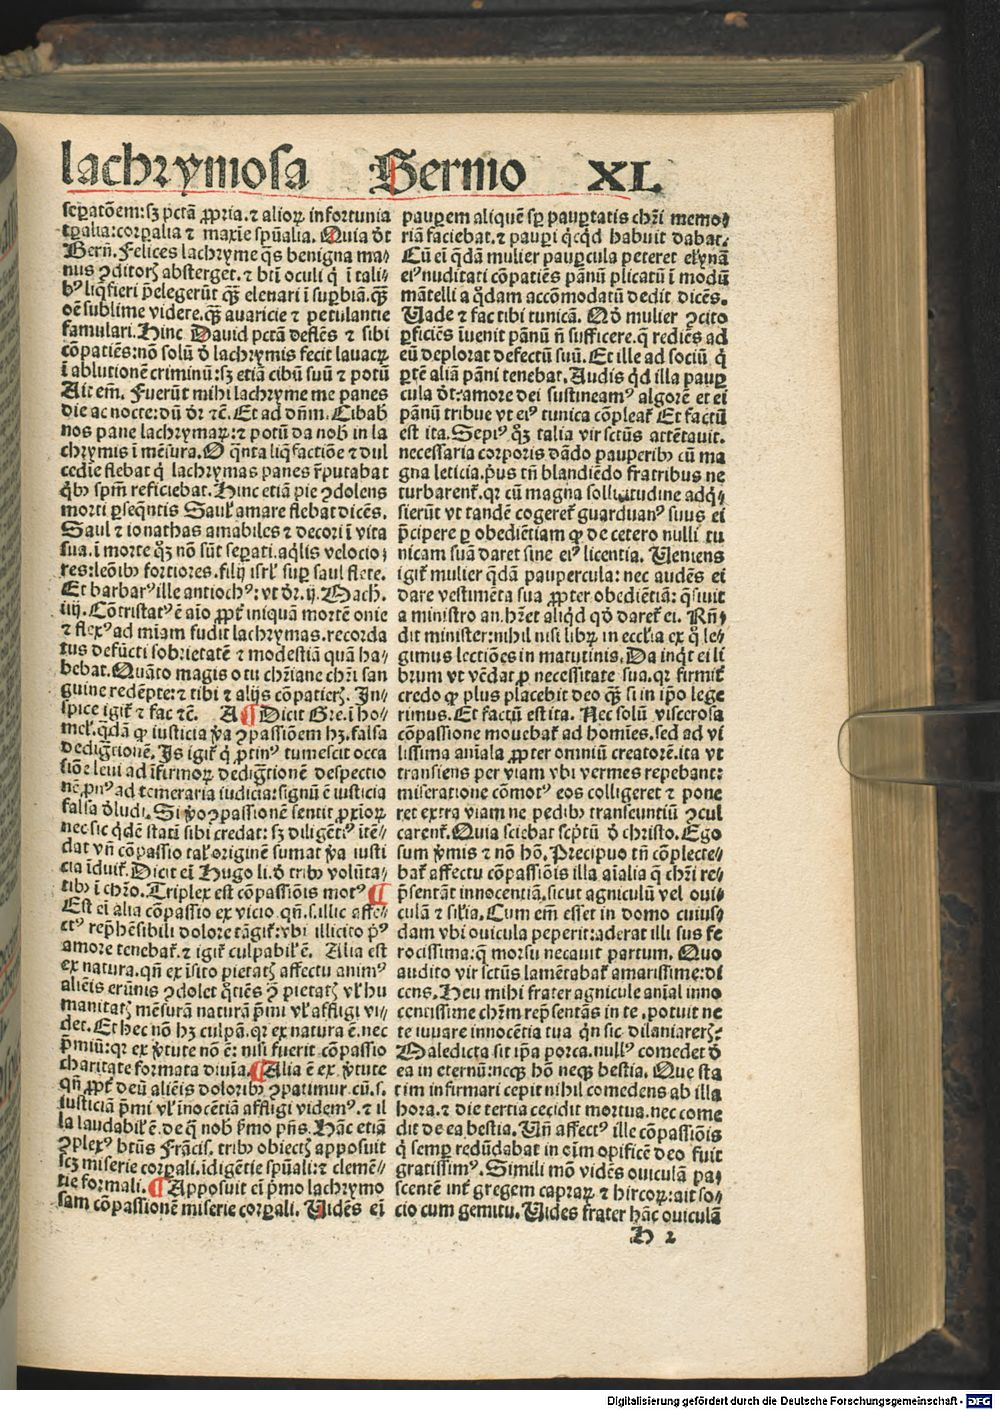 lachrymosa Sermo XL
seꝑatōem: sꝫ pctā ꝓpria. ⁊ alioꝝ infortunia
tꝑalia: corꝑalia ⁊ maxīe spūalia. Quia ðt
Bern̄. Felices lachryme qͣs benigna ma⸗
nus ꝯditorꝭ absterget. ⁊ btī oculi qͥ ī tali⸗
bꝰ liqͥfieri p̄elegerūt qͣꝫ elenari ī suꝑbiā. qͣꝫ
oē sublime videre. qͣꝫ auaricie ⁊ petulantie
famulari. Hinc Dauid pctā deflēs ⁊ sibi
cōpatiēs: nō solū ð lachrymis fecit lauacꝝ
ī ablutionē criminū: sꝫ etiā cibū suū ⁊ potū
Ait em̄. Fuerūt mihi lachryme me panes
die ac nocte: dū ðr ⁊c̄. Et ad dn̄m. Cibab̄
nos pane lachrymaꝝ: ⁊ potū da nob̄ in la
chrymis ī mēsura. O qͣnta liq̄factiōe ⁊ dul
cedīe flebat qͥ lachrymas panes r̄putabat
qͥbꝰ spm̄ reficiebat. Hinc etiā pie ꝯdolens
morti ꝑseqn̄tis Saulꝭ amare flebat dicēs.
Saul ⁊ ionathas amabiles ⁊ decori ī vita
sua. ī morte qͦꝫ nō sūt seꝑati. aqͥlis velocio⸗
res: leōibꝰ fortiores. filij isrl̄ suꝑ saul flete.
Et barbarꝰ ille antiochꝰ: vt ðr. ij. Mach.
iiij. Cōtristatꝰ ē aīo ꝓpt̄ iniquā mortē onie
⁊ flexꝰ ad mīam fudit lachrymas. recorda
tus defūcti sobrietatē ⁊ modestiā quā ha⸗
bebat. Quāto magis o tu chr̄iane chr̄i san
guine redēpte: ⁊ tibi ⁊ alijs cōpatierꝭ. In⸗
spice igit̄ ⁊ fac ⁊c̄. A ¶ Dicit Gre. ī ho⸗
mel̄. qͣdā ꝙ iusticia ꝟa ꝯpassiōem hꝫ. falsa
dedigͣtionē. Is igit̄ qͥ ꝓtinꝰ tumescit occa
siōe leui ad īfirmoꝝ dedigͣtionē despectio
nē. pͥnꝰ ad temeraria iudicia: signū ē iusticia
falsa ðludi. Si ꝟo ꝯpassionē sentit ꝓxīoꝝ
nec sic qͥdē statī sibi credat: sꝫ diligētiꝰ ītē⸗
dat vn̄ cōpassio talꝭ originē sumat ꝟa iusti
cia īduit̄. Dicit ei Hugo li. ð tribꝰ volūta⸗
tibꝰ ī chr̄o. Triplex est cōpassiōis motꝰ ¶
Est ei alia cōpassio ex vicio. qn̄. s. illic affe⸗
ctꝰ rep̄hēsibili dolore tāgit̄: vbi illicito pͥꝰ
amore tenebat̄. ⁊ igit̄ culpabil̄ ē. Alia est
ex natura. qn̄ ex īsito pietatꝭ affectu animꝰ
aliēis erūnis ꝯdolet qͦtiēs ꝯ̄ pietatꝭ vl̄ hu
manitatꝭ mēsurā naturā p̄mi vl̄ affligi vi⸗
det. Et hec nō hꝫ culpā. qr ex natura ē. nec
p̄miū: qr ex ꝟtute nō ē: nisi fuerit cōpassio
charitate formata diuīa. ¶ Alia ē ex ꝟtute
qn̄ ꝓpt̄ deū aliēis doloribꝰ ꝯpatimur. cū. s.
iusticiā p̄mi vl̄ inocētiā affligi videmꝰ. ⁊ il
la laudabil̄ ē. de qͣ nob̄ ẜmo pn̄s. Hāc etiā
ꝯplexꝰ btūs Frācis. tribꝰ obiectꝭ apposuit
scꝫ miserie corꝑali. īdigētie spūali: ⁊ clemē⸗
tie formali. ¶ Apposuit ei pͥmo lachrymo
sam cōpassionē miserie corꝑali. Uidēs ei
pauꝑem aliquē sꝑ pauꝑtatis chr̄i memo⸗
riā faciebat. ⁊ pauꝑi qͥcqͥd habuit dabat.
Cū ei qͣdā mulier pauꝑcula peteret elynā
eiꝰ nuditati cōpatiēs pānū plicatū ī modū
mātelli a qͦdam accōmodatū dedit dicēs.
Uade ⁊ fac tibi tunicā. Qð mulier ꝯcito
ꝑficiēs īuenit pānū n̄ sufficere. q̄ rediēs ad
eū deplorat defectū suū. Et ille ad sociū qͥ
ꝑtē aliā pāni tenebat. Audis qͥd illa pauꝑ
cula ðt: amore dei sustineamꝰ algorē et ei
pānū tribue vt eiꝰ tunica cōpleat̄ Et factū
est ita. Sepiꝰ qͦꝫ talia vir sctūs attētauit.
necessaria corporis dādo pauperibꝰ cū ma
gna leticia. pͥus tn̄ blandiēdo fratribus ne
turbarent̄. qr cū magna sollicitudine adqͥ⸗
sierūt vt tandē cogeret̄ guardianꝰ suus ei
p̄cipere ꝑ obediētiam ꝙ de cetero nulli tu
nicam suā daret sine eiꝰ licentia. Ueniens
igit̄ mulier qͣdā paupercula: nec audēs ei
dare vestimēta sua ꝓpter obediētiā: qͣsiuit
a ministro an. hr̄et aliqͥd qð daret̄ ei. Rn̄⸗
dit minister: nihil nisi libꝝ in eccl̄ia ex qͦ le⸗
gimus lectiōes in matutinis. Da inqͥt ei li
brum vt vēdat ꝓ necessitate sua. qr firmit̄
credo ꝙ plus placebit deo qͣꝫ si in ip̄o lege
rimus. Et factū est ita. Nec solū viscerosa
cōpassione mouebat̄ ad homīes. sed ad vi
lissima anīalia ꝓpter omniū creatorē. ita vt
transiens per viam vbi vermes repebant:
miseratione cōmotꝰ eos colligeret ⁊ pone
ret extra viam ne pedibꝰ transeuntiū ꝯcul
carent̄. Quia sciebat scp̄tū ð christo. Ego
sum ꝟmis ⁊ nō hō. Precipuo tn̄ cōplecte⸗
bat̄ affectu cōpassiōis illa aīalia q̄ chr̄i re⸗
p̄sentāt innocentiā. sicut agniculū vel oui⸗
culā ⁊ sil̄ia. Cum em̄ esset in domo cuius⸗
dam vbi ouicula peperit: aderat illi sus fe
rocissima: q̄ morsu necauit partum. Quo
audito vir sctūs lamētabat̄ amarissime: di
cens. Heu mihi frater agnicule anīal inno
centissime chr̄m rep̄sentās in te. potuit ne
te iuuare innocētia tua qͥn sic dilaniarerꝭ.
Maledicta sit ip̄a porca. nullꝰ comedet ð
ea in eternū: necqꝫ hō neqꝫ bestia. Que sta
tim infirmari cepit nihil comedens ab illa
hora. ⁊ die tertia cecidit mortua. nec come
dit de ea bestia. Un̄ affectꝰ ille cōpassiōis
qͥ semꝑ redūdabat in oīm opificē deo fuit
gratissimꝰ. Simili mō vidēs ouiculā pa⸗
scentē int̄ gregem capraꝝ ⁊ hircoꝝ: ait so⸗
cio cum gemitu. Uides frater hāc ouiculā
H 2
Digitalisierung gefördert durch die Deutsche Forschungsgemeinschaft - DFG